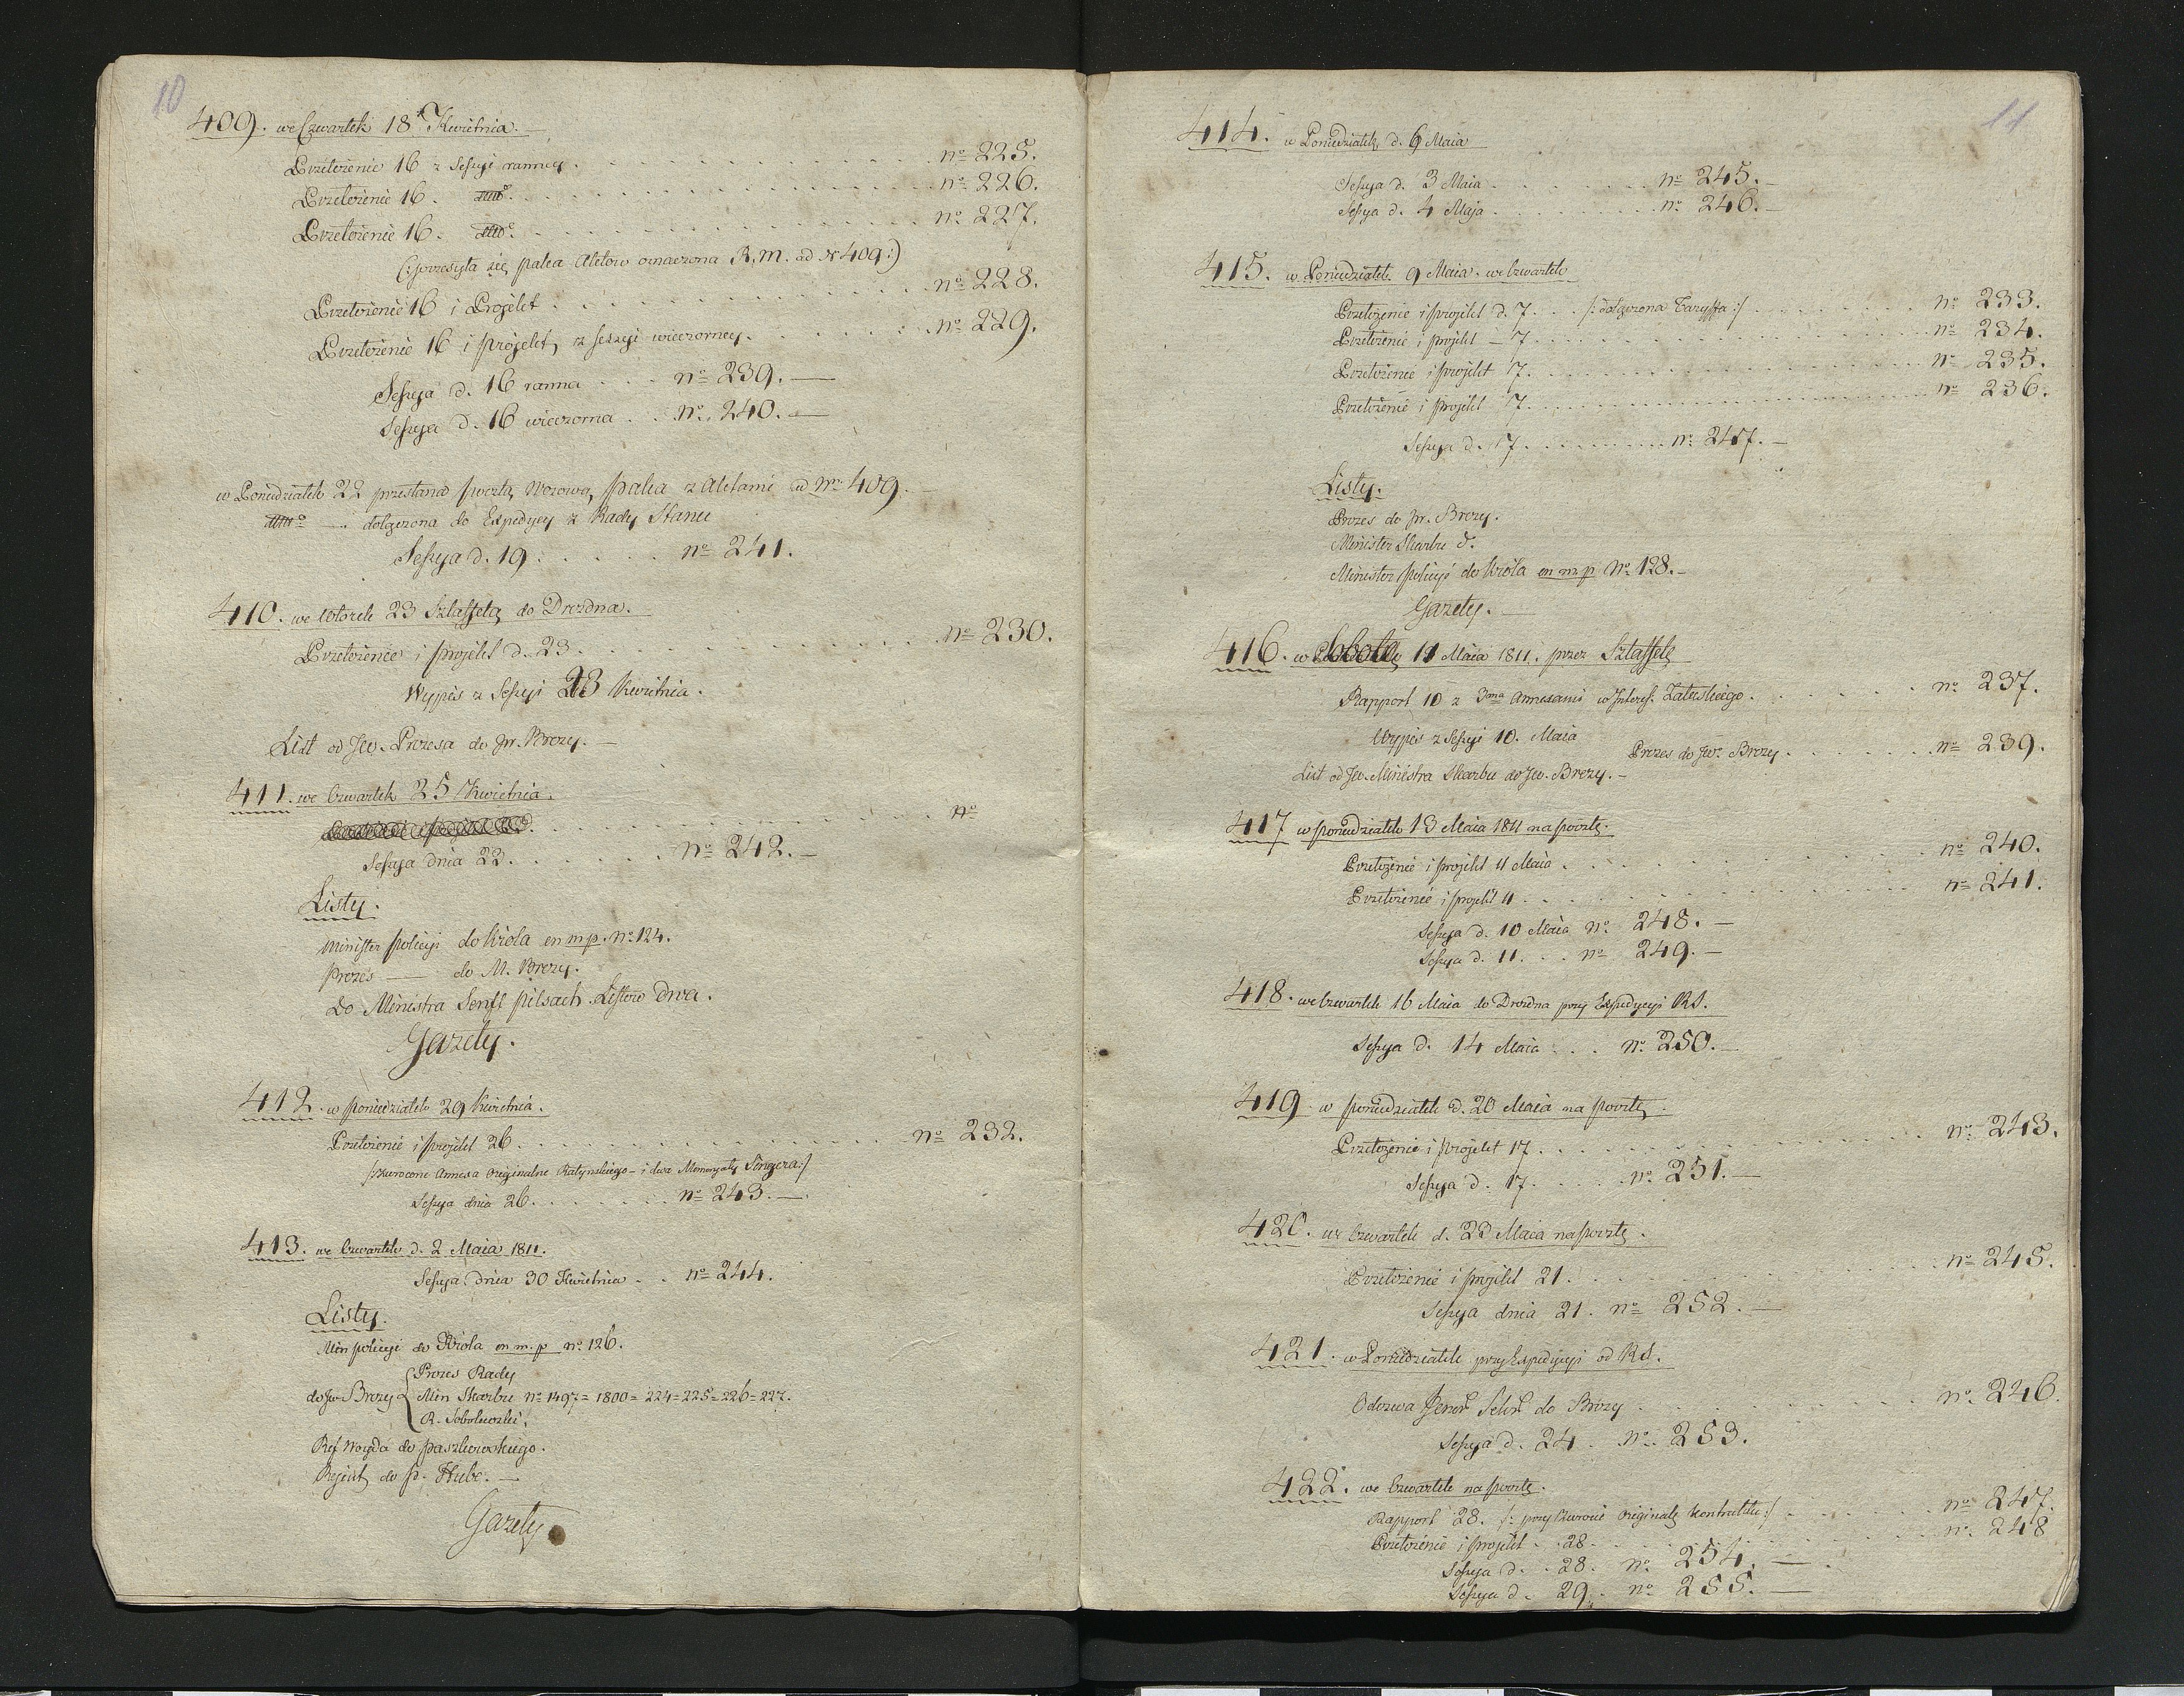 10
409. we Czwartek 18 Kwietnia.
Przełożenie 16 z Sessyi ranney. nº 225.
Przełożenie 16. dttº. nº 226.
Przełożenie 16. dttº. nº 227.
(: przesyła się paka Aktow oznaczona R. M. ad Nº 409 :)
Przełożenie 16 i Projekt nº 228.
Przełożenie 16 i projekt, z sessyi wieczorney. nº 229.
Sessya d. 16 ranna nº 239. —
Sessya d. 16 wieczorna nº 240. —
w Poniedziałek 22 przesłana pocztą Wozową paka z Aktami ad Nro 409. —
dttº —. dołączona do Expedycyi z Rady Stanu
Sessya d. 19. nº 241.
410. we Wtorek 23 Sztaffetą do Drezdna. —
Przełożenie i projekt d. 23. nº 230.
Wypis z Sessyi 23 Kwietnia.
List od JW. Prezesa do Jr. Brezy. —
411. we Czwartek 25 Kwietnia.
nº
Sessya dnia 23. nº 242. —
Listy.
Minister policyi do Króla en m p. nº 124.
Prezes — do M. Brezy.
do Ministra Senfft Pilsach. Listow dwa.
Gazety.
412. w poniedziałek 29 Kwietnia.
Przełożenie i projekt 26. nº 232.
/: zwrocone Annexa originalne Ratynskiego — i dwa Memoryały Singera :/
Sessya dnia 26. nº 243. —
413. we Czwartek d. 2 Maia 1811.
Sessya dnia 30 Kwietnia nº 244.
Listy.
Min policyi do Króla en m. p nº 126.
do Jw Brezy { Prezes Rady
Min Skarbu nº 1497 = 1800 = 224 = 225 = 226 = 227.
R. Sobolewski.
Ref Woyda do Paszkowskiego.
Rejent do p. Hube. —
Gazety
11
414. w Poniedziałek, d. 6 Maia
Sessya d. 3 Maia nº 245. —
Sessya d. 4 Maja nº 246. —
415. w Poniedziałek 9 Maia. we Czwartek
Przełożenie i projekt d. 7. /: dołączona Taryffa :/ nº 233.
Przełożenie i projekt — 7. nº 234.
Przełożenie i projekt 7. nº 235.
Przełożenie i projekt 7. nº 236.
Sessya d. 7. nº 247. —
Listy.
Prezes do Jr. Brezy.
Minister Skarbu d.
Minister policyi do Króla en m. p Nº 128. —
Gazety. —
416. w Sobotę 11 Maia 1811. przez Sztaffetę
Rapport 10 z 3ma Annexami w Interess. Załuskiego. nº 237.
Wypis z Sessyi 10. Maia
Prezes do Jw. Brezy nº 239.
List od Jw. Ministra Skarbu do Jw. Brezy. —
417 w poniedziałek 13 Maia 1811 na pocztę.
Przełożenie i projekt 11 Maia nº 240.
Przełożenie i projekt 11. nº 241.
Sessya d. 10 Maia nº 248. —
Sessya d. 11. nº 249. —
418. we Czwartek 16 Maia do Drezdna przy Expedycyi RS.
Sessya d. 14 Maia nº 250. —
419 w poniedziałek d. 20 Maia na pocztę.
Przełożenie i projekt 17. nº 243.
Sessya d. 17. nº 251. —
420. we Czwartek d. 23 Maia na pocztę.
Przełożenie i projekt 21. nº 245.
Sessya dnia 21. nº 252. —
421. w Poniedziałek przy Expedycyi od RS.
Odezwa Jener Sekr do Brezy nº 246.
Sessya d. 24. Nº 253.
422. we Czwartek na pocztę.
Rapport 28. /: przy zwrocie originału Kontraktu :/ nº 247.
Przełożenie i projekt 28. nº 248
Sessya d. 28. nº 254. —
Sessya d. 29. nº 255. —